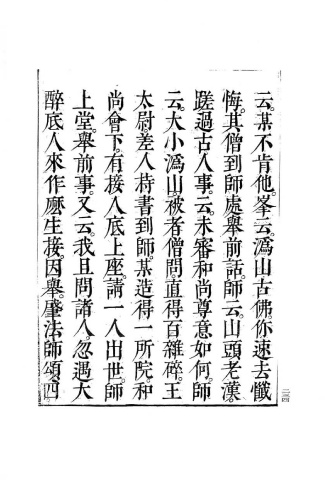 云。某不肯他。峯云。溈山古佛。你速去懺
悔。其僧到師處舉前話。師云。山頭老漢。
蹉過古人事。云。未審和尚尊意如何。師
云。大小溈山被者僧問直得百雜碎。王
太尉。差人持書到師。某造得一所院。和
尚會下。有接人底上座。請一人出世。師
上堂。舉前事。又云。我且問諸人。忽遇大
醉底人來。作麼生接。因舉。肇法師頌。四
二三四